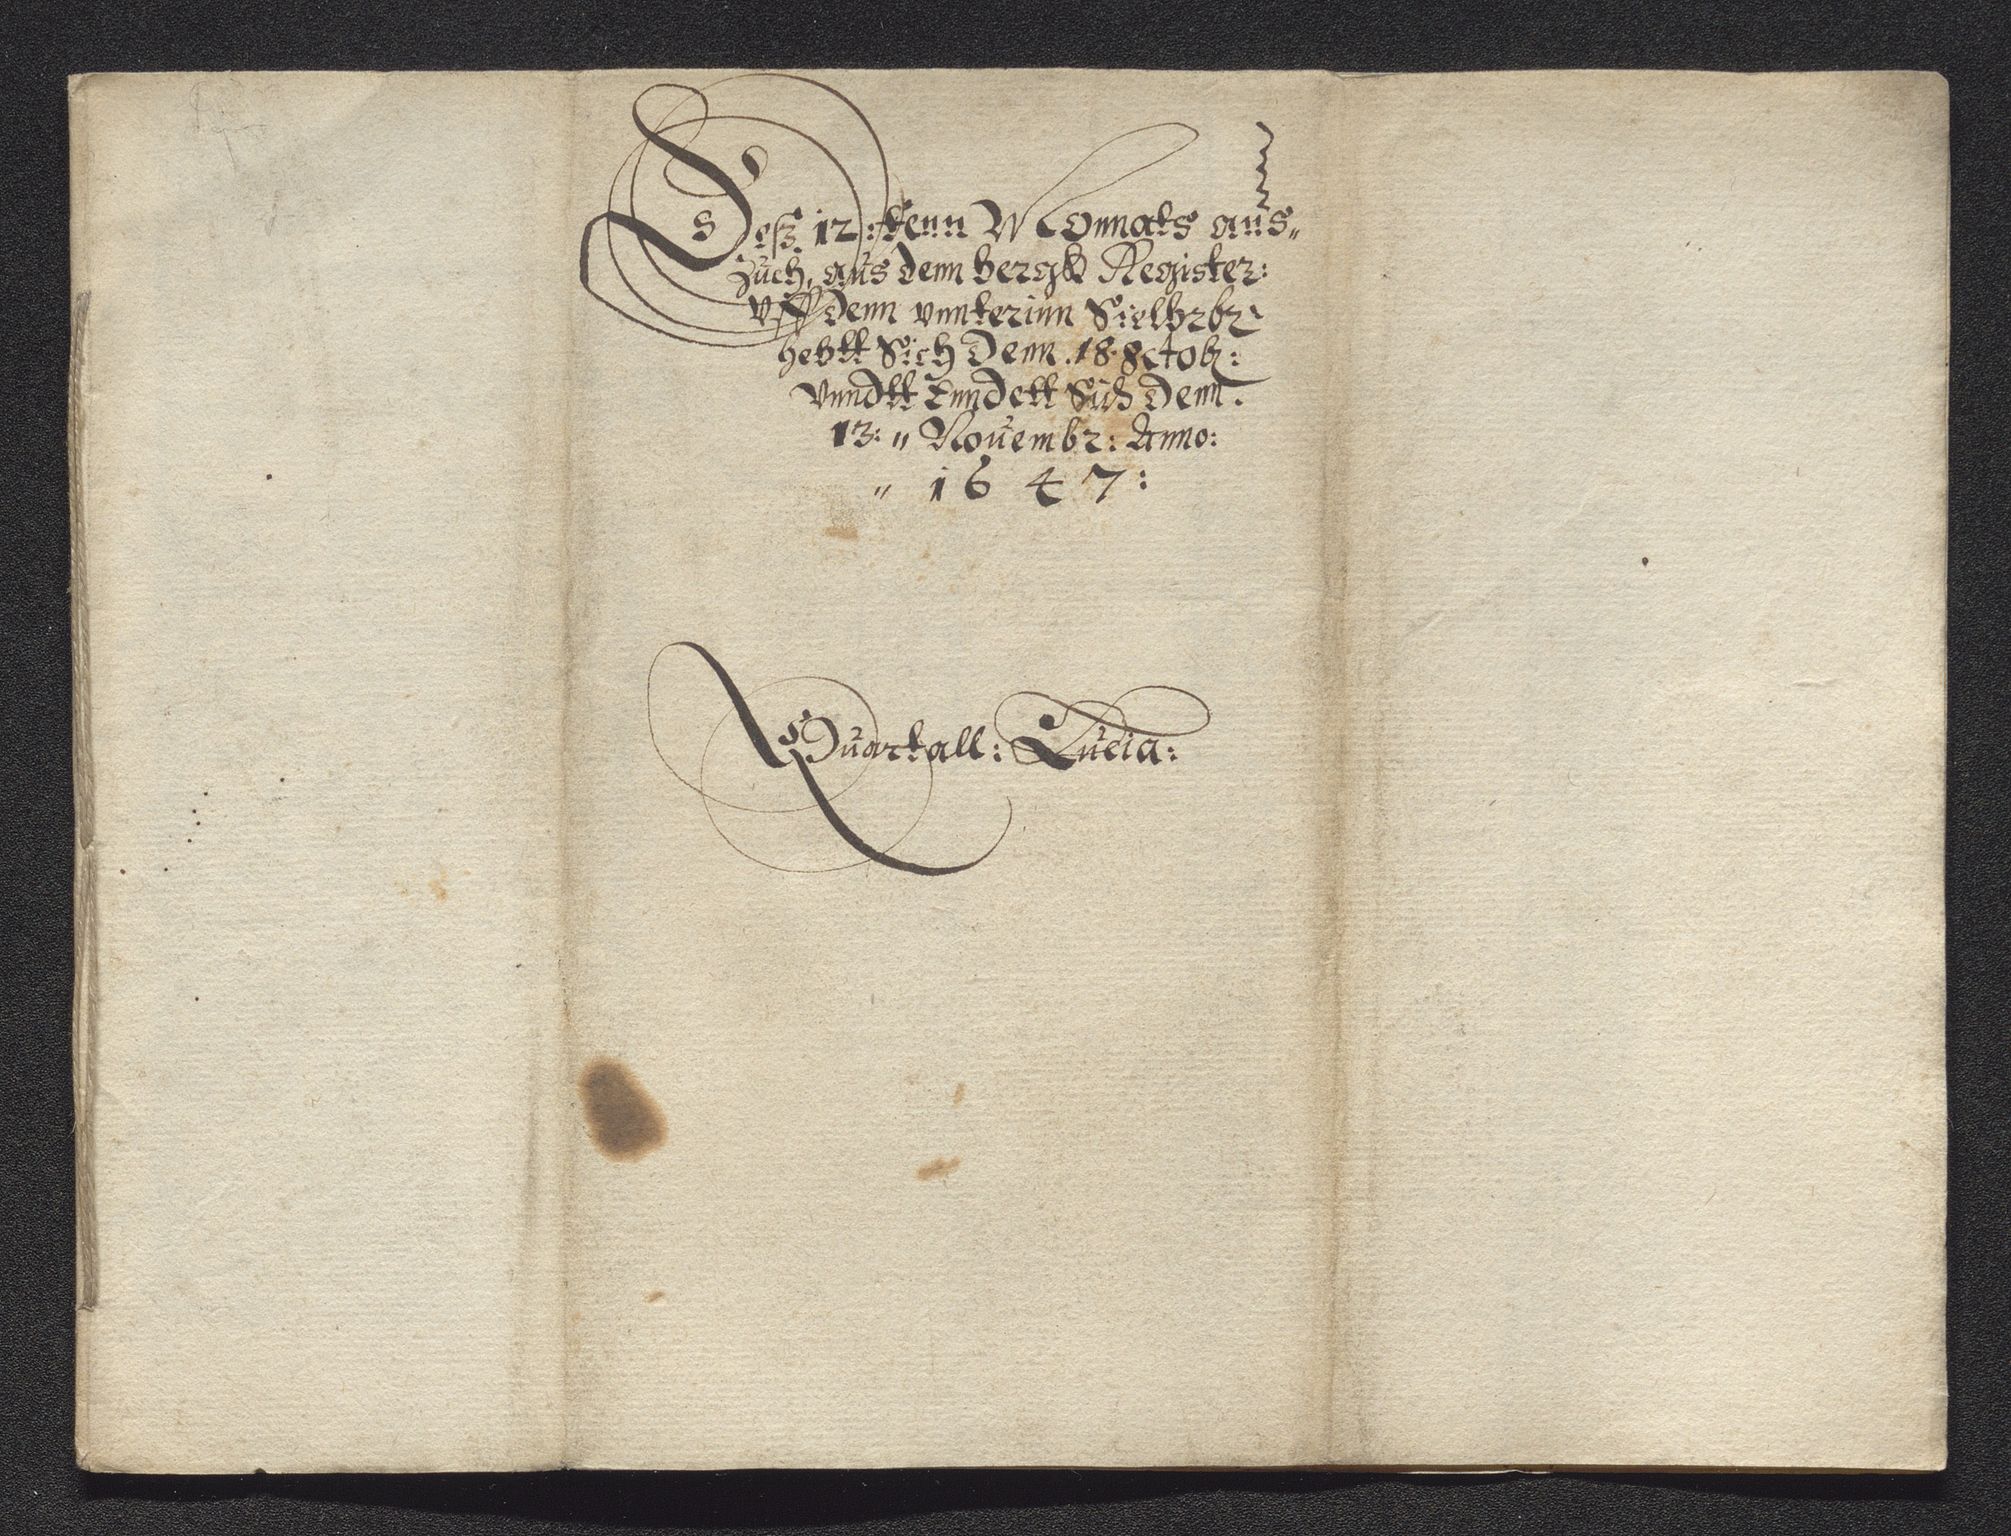 Deß 12:tenn Monnats aus„
Zuch, aus denn bergk Register:
vff denn vnnterinn
hebtt Sich denn .18. 8ctob:
Vnndtt Enndett Sich denn.
13: „ Nouembr: Anno:
„ 1647:
Quartall: Lucia: